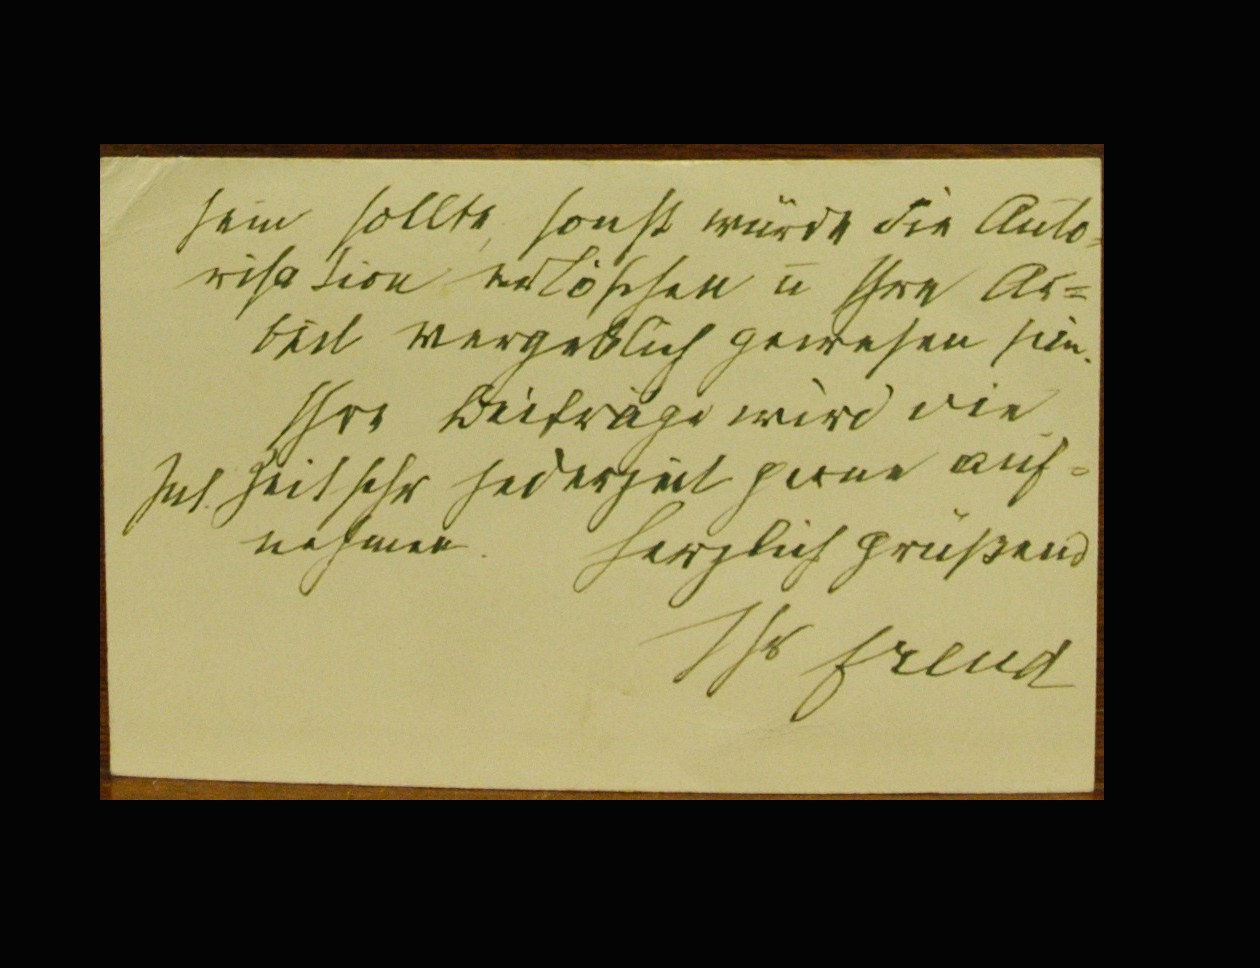 sein sollte, sonst würde die Auto-
risation erlöschen u Ihre Ar=
beit vergeblich gewesen sein.
Ihre Beiträge wird die
Int. Zeitschr jederzeit gerne auf=
nehmen. Herzlich grüßend
Ihr Freud